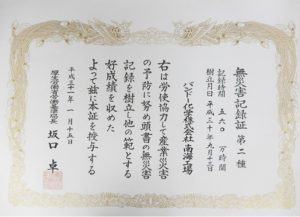 無災害記録証 第二種
記録時間 五六〇 万時間
樹立月日 平成三十年九月十三日
バンドー化学株式会社 南海工場
右は労使協力して産業災害
の予防に努め頭書の無災害
記録を樹立し他の範とする
好成績を収めた
よって茲に本証を授与する
平成三十一年一月十五日
厚生労働省労働基準局長
坂口 卓